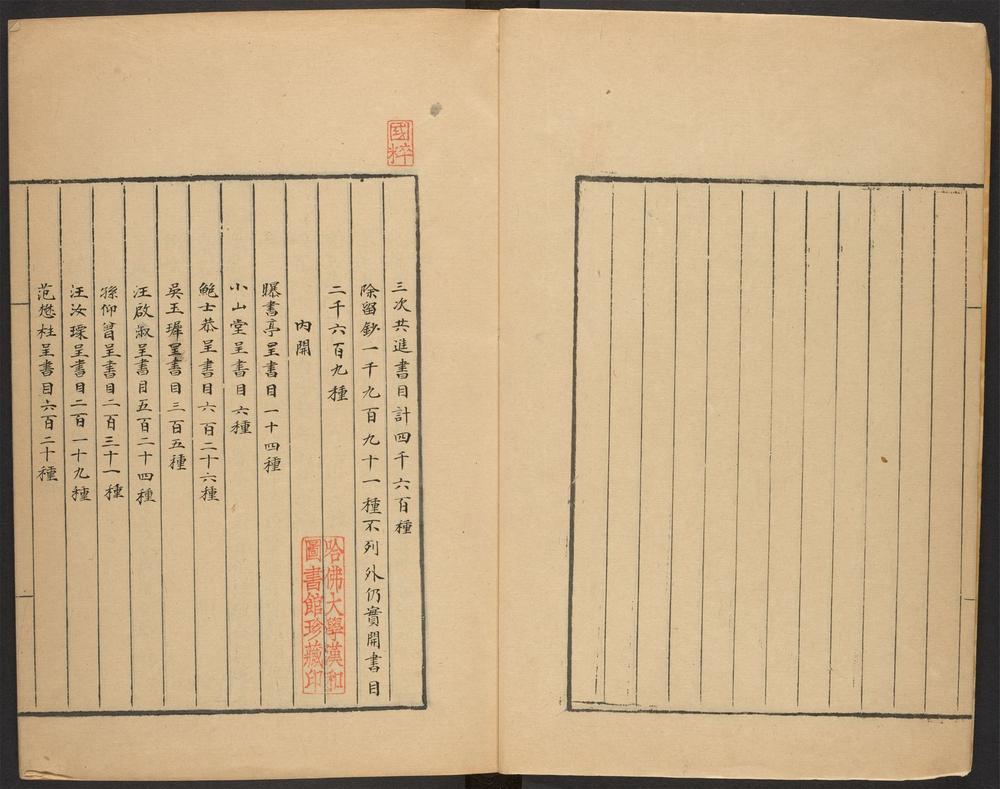 國粹
三次共進書目計四千六百種
除留鈔一千九百九十一種不列外仍實開書目
二千六百九種
內開
曝書亭呈書目一十四種
小山堂呈書目六種
鮑士恭呈書目六百二十六種
吳玉墀呈書目三百五種
汪啟淑呈書目五百二十四種
孫仰曾呈書目二百三十一種
汪汝瑮呈書目二百一十九種
范懋柱呈書目六百二十種
哈佛大學漢和
圖書館珍藏印